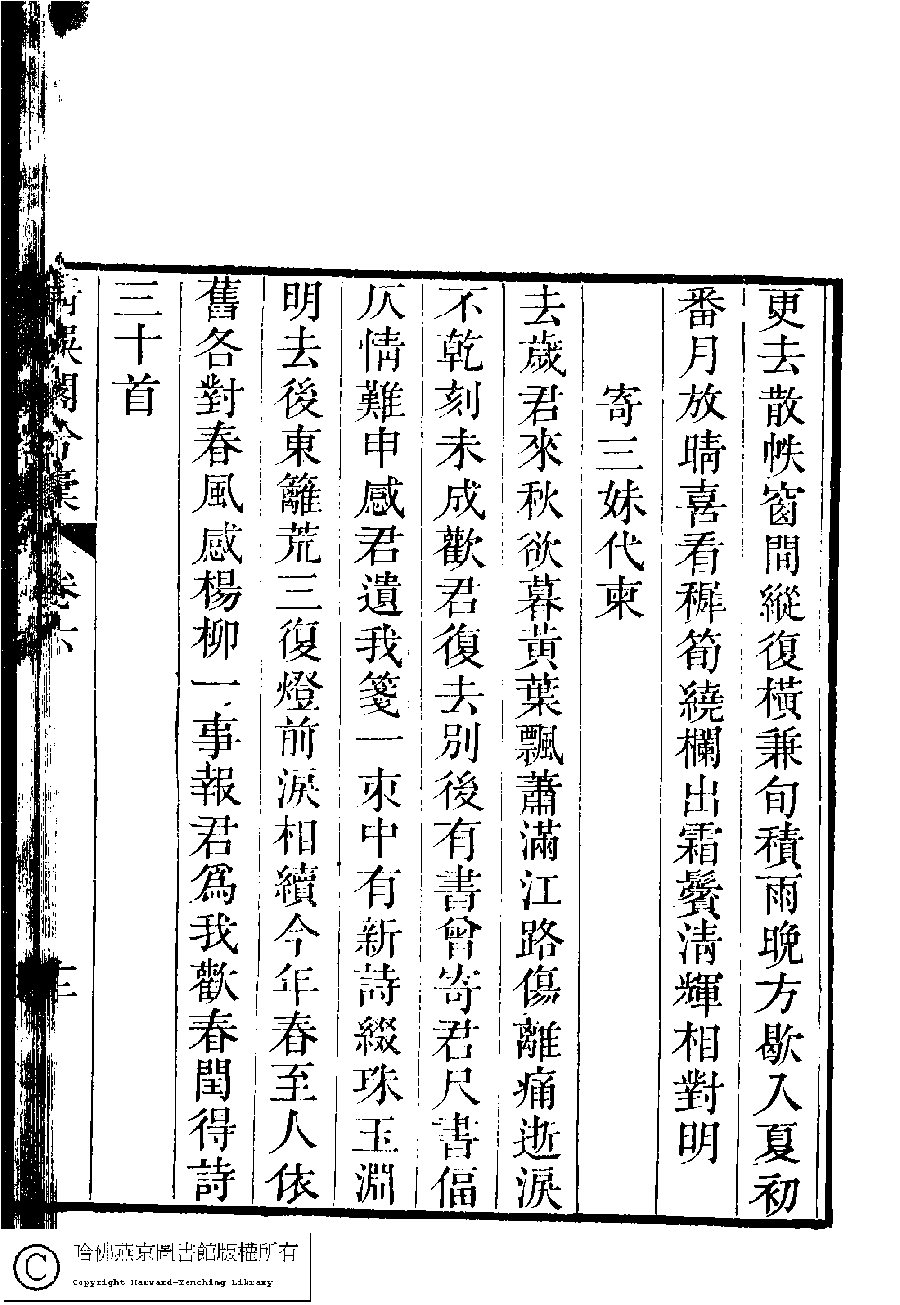 更去散帙窗間縱復橫兼旬積雨晚方歇入夏初
番月放晴喜看穉筍繞欄出霜鬢清輝相對明
寄三妹代柬
去歲君來秋欲暮黃葉飄蕭滿江路傷離痛逝淚
不乾刻未成歡君復去別後有書曾寄君尺書偪
仄情難申感君遺我箋一束中有新詩綴珠玉淵
明去後東籬荒三復燈前淚相續今年春至人依
舊各對春風感楊柳一事報君爲我歡春閨得詩
三十首
卷六
哈佛燕京圖書館版權所有
Copyright Harvard-Yenching Library